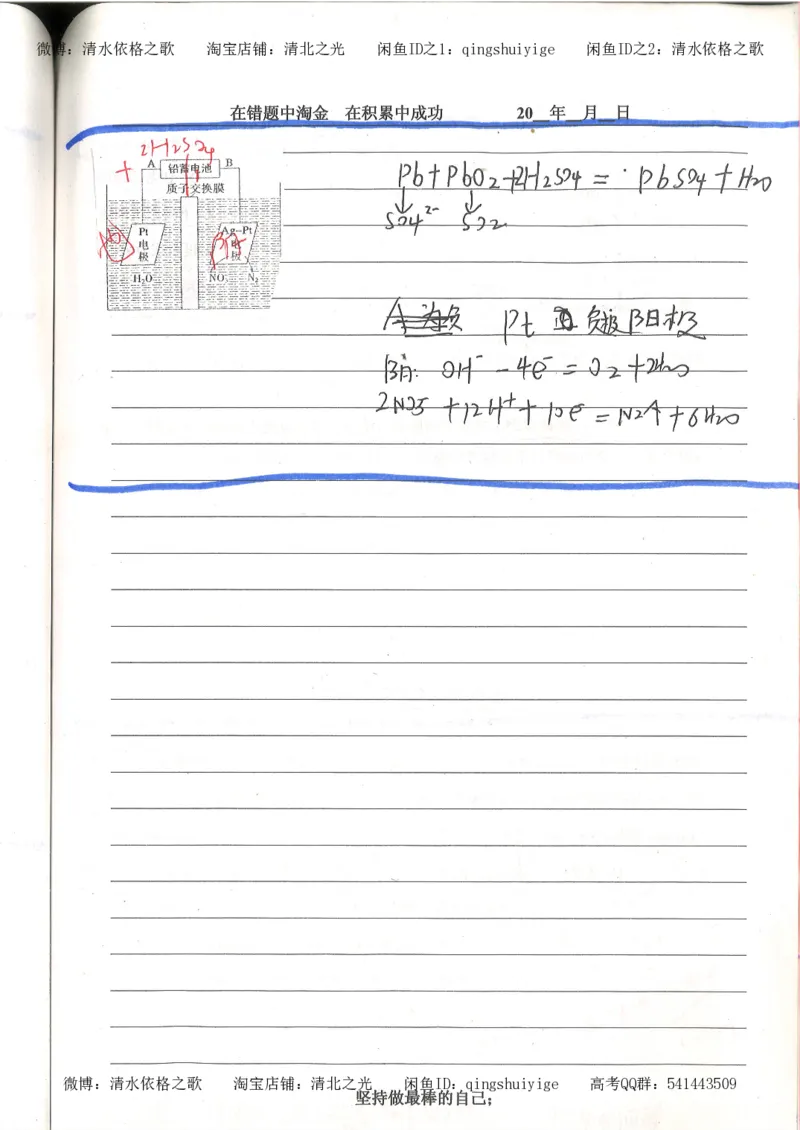 微博：清水依格之歌 淘宝店铺：清北之光 闲鱼ID之1：qingshuiyige 闲鱼ID之2：清水依格之歌
在错题中淘金 在积累中成功 20__年__月__日
2H₂SO₄
+ A 铅蓄电池 B
质子交换膜
Pt电极
Ag-Pt电极
H₂O NO₃⁻ N₂
Pb+PbO₂+2H₂SO₄ = PbSO₄+H₂O
SO₄²⁻ SO₂
Pt 负极 阳极
阳: OH⁻ -4e⁻ = O₂+2H₂O
2NO₃⁻ +12H⁺+10e⁻ = N₂↑+6H₂O
微博：清水依格之歌 淘宝店铺：清北之光 闲鱼ID：qingshuiyige 高考QQ群：541443509
坚持做最棒的自己；